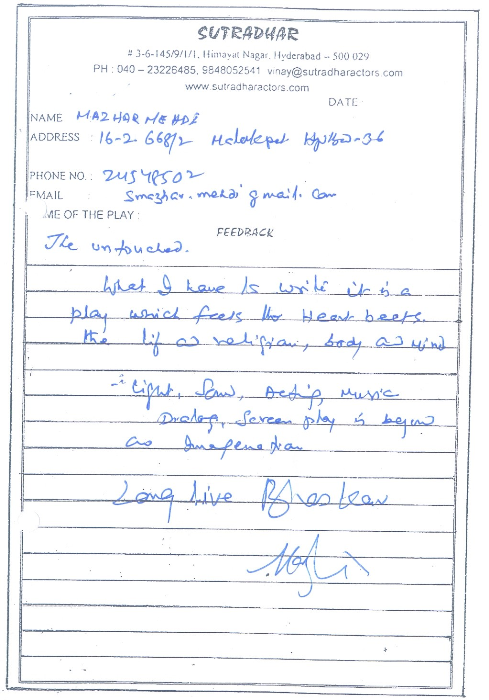 SUTRADHAR
# 3-6-145/9/1/1, Himayat Nagar, Hyderabad – 500 029
PH : 040 – 23226485, 9848052541 vinay@sutradharactors.com
www.sutradharactors.com
DATE :
NAME MAZHAR MEHDI
ADDRESS : 16-2-668/2 Malakpet Hydbad-36
PHONE NO. : 24578502
EMAIL smazhar.mehdi gmail.com
ME OF THE PLAY :
FEEDBACK
The untouched.
What I have to write it is a
play which feels the Heart beets.
the lif as religian, body as Mind
Light, Soun, Acting, Music
Dialog, Screen play is beyon
as Imagenation
Long Live Bhaskar